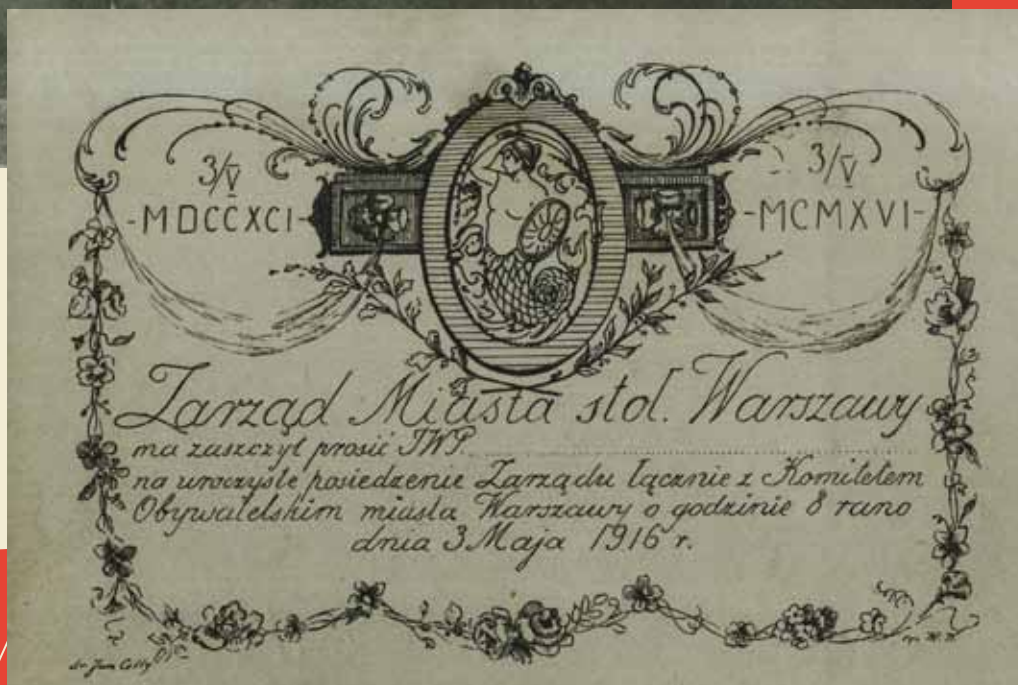 3/V
-MDCCXCI-
3/V
-MCMXVI-
Zarząd Miasta stoł. Warszawy
ma zaszczyt prosić JWP.
na uroczyste posiedzenie Zarządu łącznie z Komitetem
Obywatelskim miasta Warszawy o godzinie 8 rano
dnia 3 Maja 1916 r.
dr. Jan